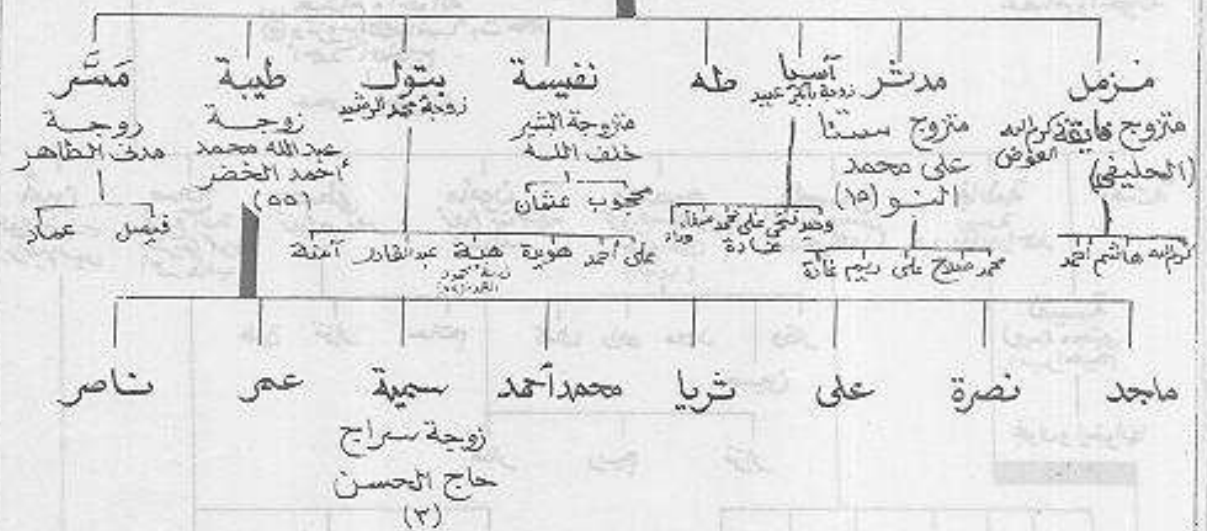 مزمل
متزوج فايقة كرم الله العوض
(الحليفي)
كرم الله هاشم أحمد
مدثر
متزوج ستنا
على محمد
النو (١٥)
محمد صلاح على ريم غادة
آسيا
زوجة بابكر عبيد
غادة
طه
نفيسة
متزوجة البشير
خلف الله
محجوب عثمان
بتول
زوجة محمد الرشيد
على أحمد هويدة هبة عبد القادر آمنة
طيبة
زوجة
عبد الله محمد
أحمد الخضر
(٥٥)
مسَّر
زوجة
مدنى الطاهر
فيصل عماد
ماجد نصرة على ثريا محمد أحمد سمية عمر ناصر
زوجة سراج
حاج الحسن
(٣)